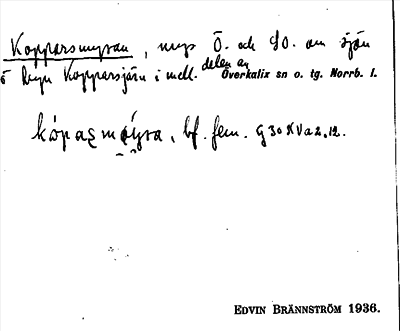 Kopparsmyran, myr Ö. och SO. om sjön
o byn Kopparsjärn i mell. delen av Överkalix sn o. tg. Norrb. l.
bf. fem. G 30 XV a 2, 12.
EDVIN BRÄNNSTRÖM 1936.